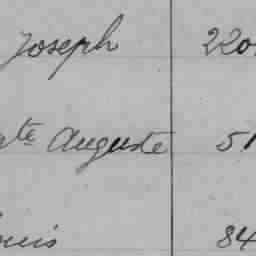 Joseph 220
te Auguste 51
ouis 84